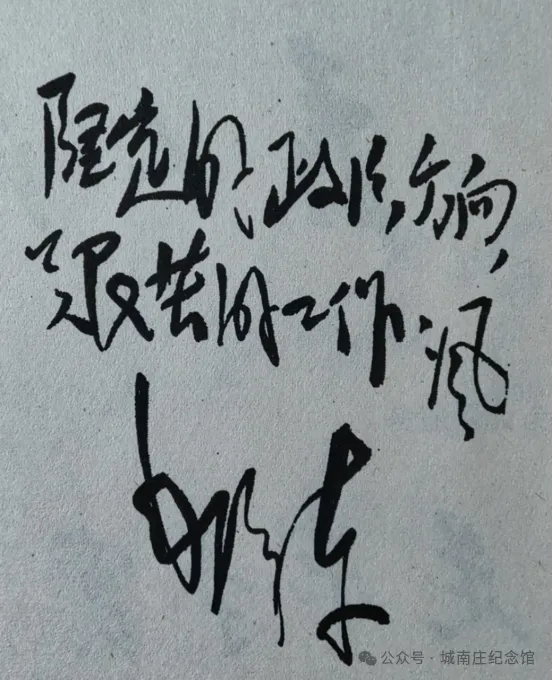 坚定的政治方向，
艰苦的工作々风
毛泽东
公众号·城南庄纪念馆